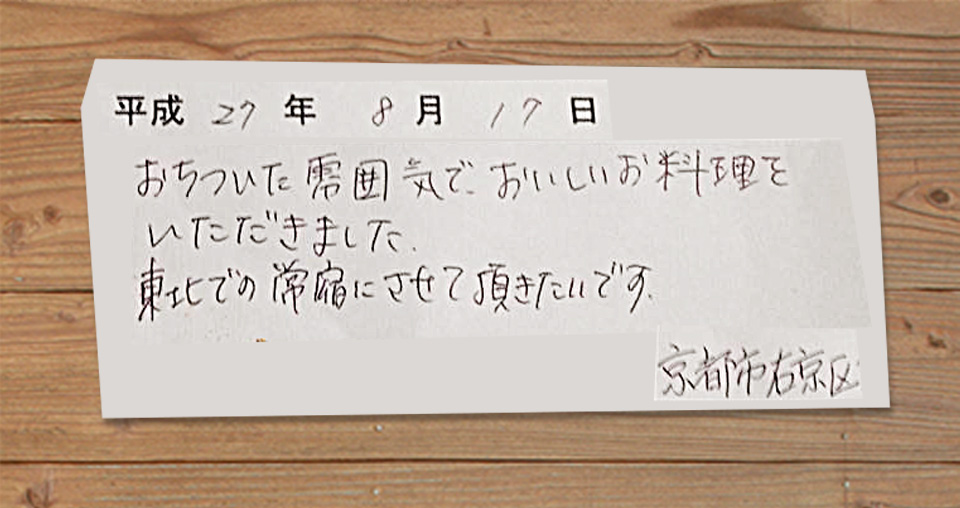 平成 27 年 8 月 17 日
おちついた雰囲気で、おいしいお料理を
いただきました。
東北での常宿にさせて頂きたいです。
京都市右京区